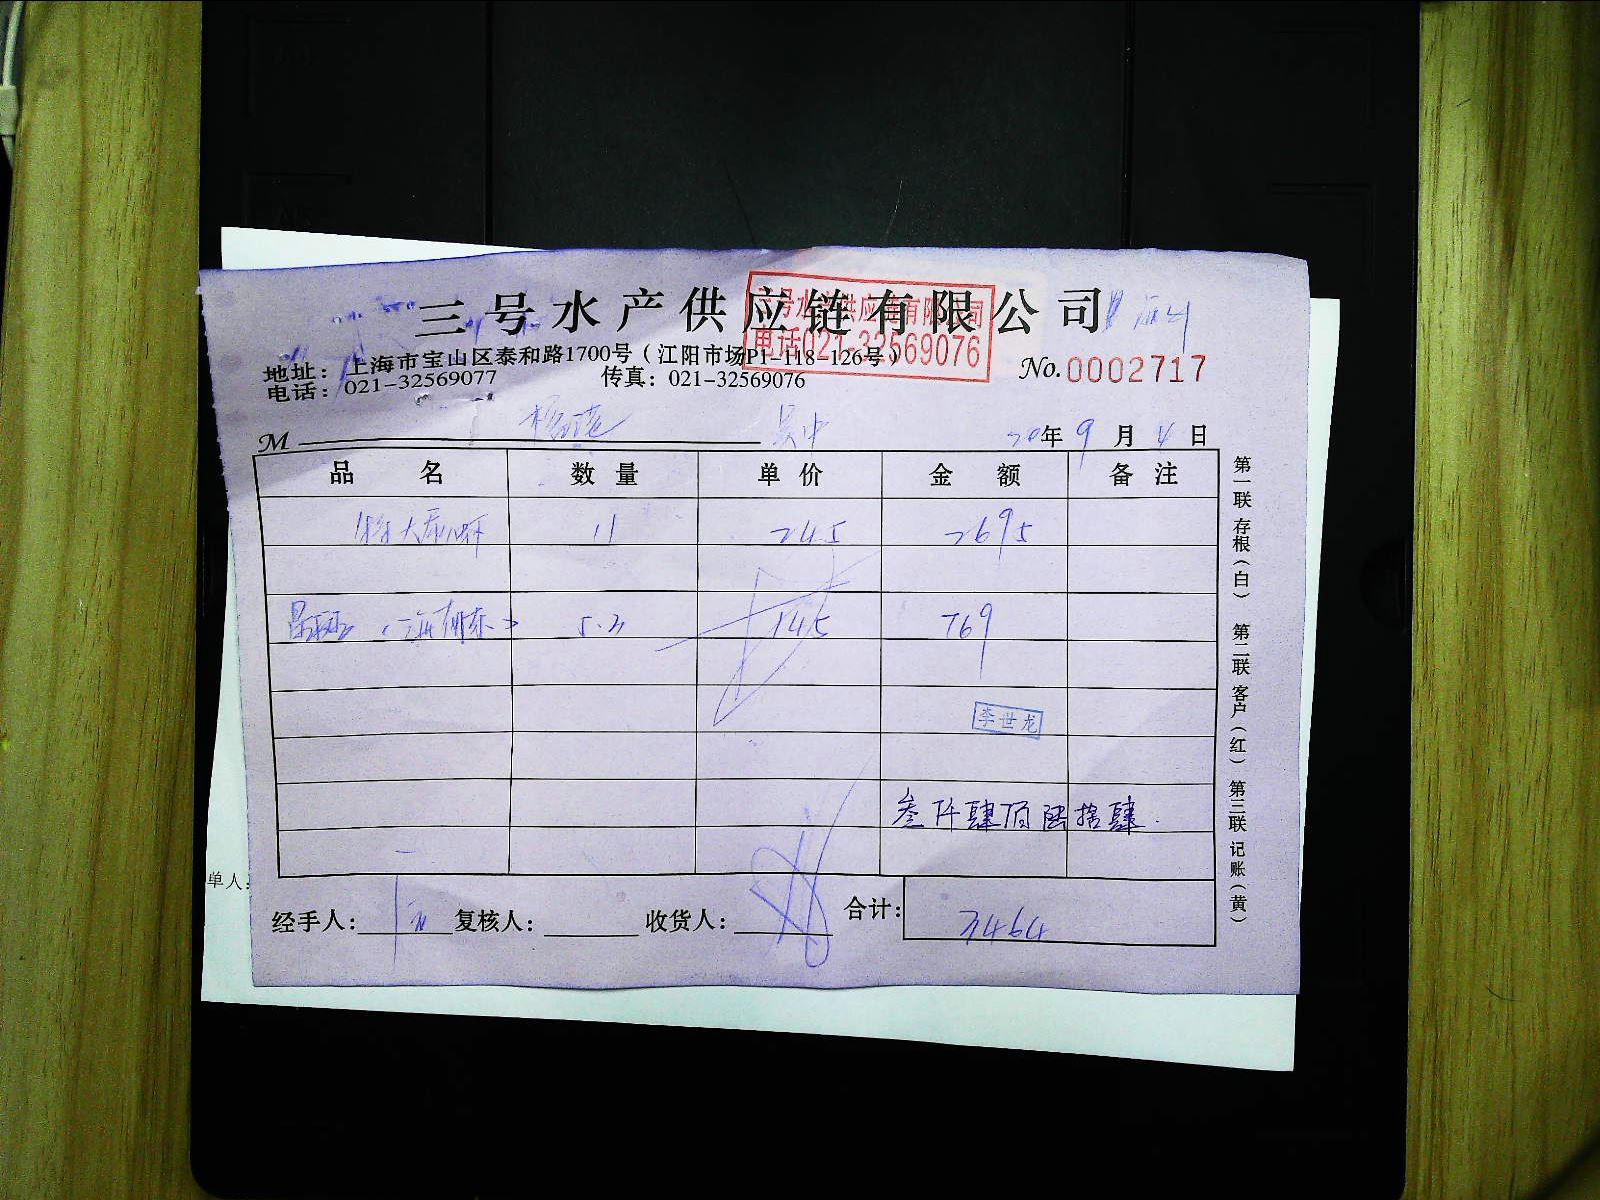 三号水产供应链有限公司
三号水产供应链有限公司
电话021-32569076
地址：上海市宝山区泰和路1700号（江阳市场P1-118-126号）
电话：021-32569077 传真：021-32569076
No.0002717
M 吴中 20年9月4日
品名 数量 单价 金额 备注
11 245 2695
5.3 145 769
李世龙
叁仟肆佰陆拾肆
经手人： 复核人： 收货人： 合计：3464
第一联 存根（白） 第二联 客户（红） 第三联 记账（黄）
单人：